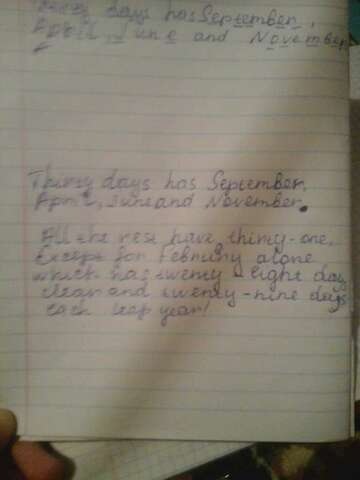 Thirty days has September,
April, June and November
Thirty days has September,
April, June and November.
All the rest have thirty-one,
Except for February alone
which has twenty-eight day
clear and twenty-nine days
each leap year!